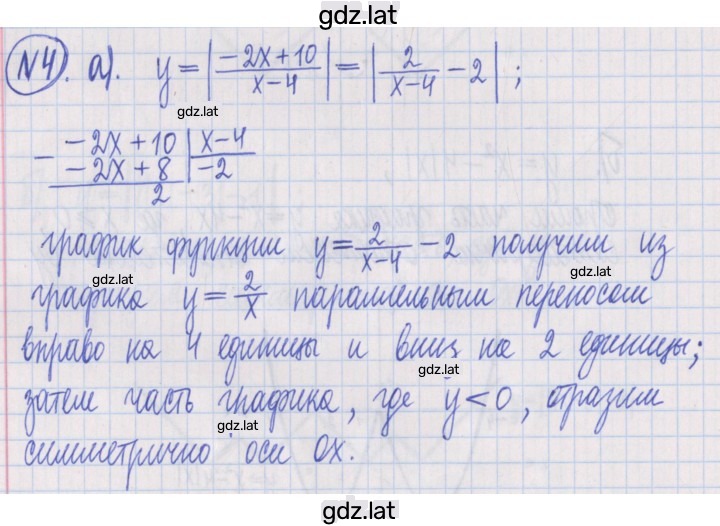 gdz.lat
№4. а). y = |(-2x+10)/(x-4)| = |2/(x-4) - 2| ;
gdz.lat
gdz.lat
- -2x+10 | x-4
-2x+8 | -2
2
gdz.lat
график функции y = 2/(x-4) - 2 получим из
gdz.lat
gdz.lat
графика y = 2/x параллельным переносом
вправо на 4 единицы и вниз на 2 единицы;
gdz.lat
затем часть графика, где y < 0, отразим
gdz.lat
симметрично оси Ox.
gdz.lat